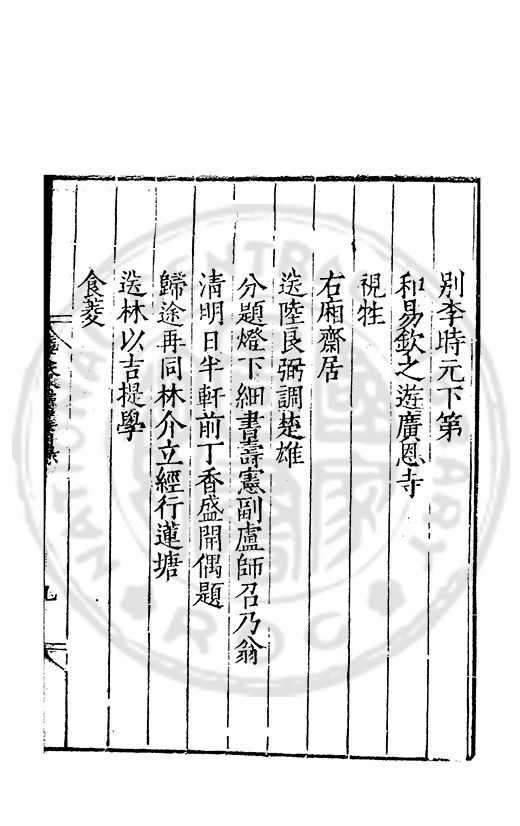 別李時元下第
和易欽之遊廣恩寺
視牲
右廂齋居
送陸良弼調楚雄
分題燈下細書壽憲副盧師召乃翁
清明日半軒前丁香盛開偶題
歸途再同林介立經行蓮塘
送林以吉提學
食菱
九